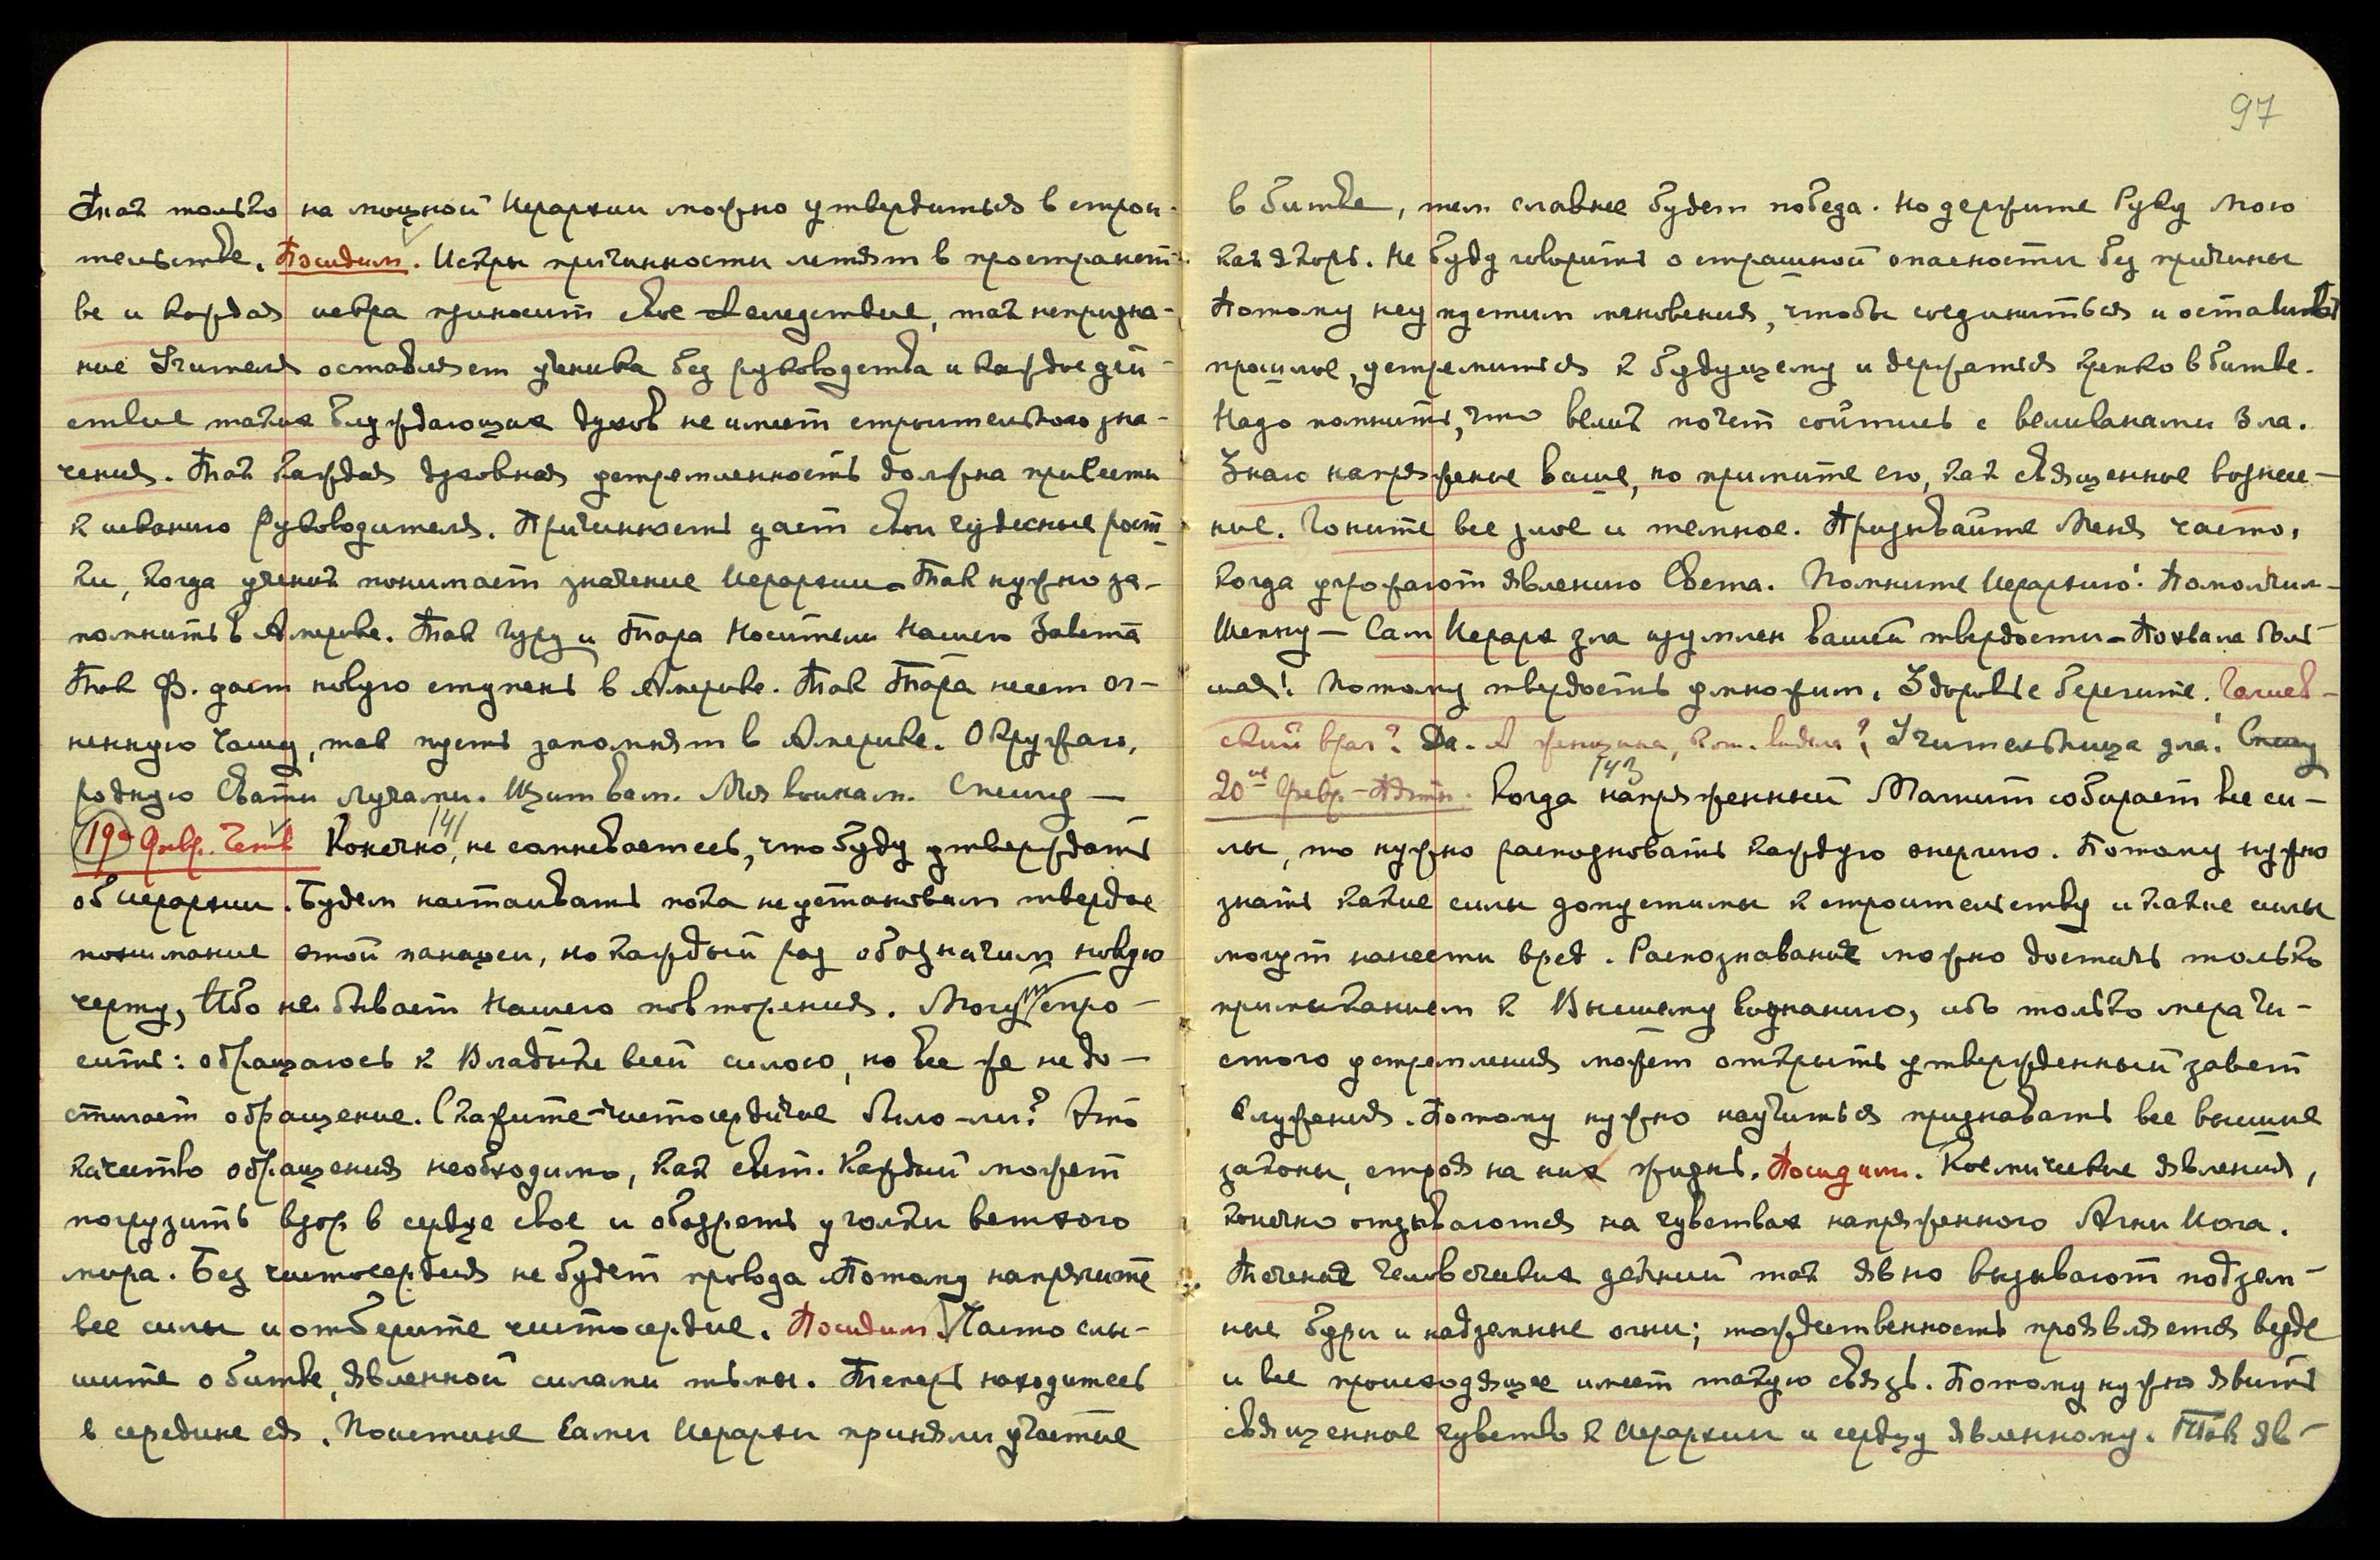 Так только на мощной Иерархии можно утвердиться в строи-
тельстве. Посидим. Искры причинности летят в пространст-
ве и каждая искра приносит свое следствие, так непризна-
ние Учителя оставляет ученика без руководства и каждое дей-
ствие таких блуждающих духов не имеет строительного зна-
чения. Так каждая духовная устремленность должна привести
к исканию Руководителя. Причинность дает свои чудесные рост-
ки, когда ученик понимает значение Иерархии. Так нужно за-
помнить в Америке. Так Гуру и Тара Носители Нашего Завета
Так Ф. дает новую ступень в Америке. Так Тара несет ог-
ненную Чашу, так пусть запомнят в Америке. Окружаю,
родную Свати лучами. Щит вам. Мы воинам. Спешу —
141
19е Февр. Четв Конечно, не сомневаетесь, что буду утверждать
об иерархии. Будем настаивать пока не установим твердое
понимание этой панацеи, но каждый раз обозначим новую
черту, Ибо не бывает Нашего повторения. Могут спро-
сить: обращаюсь к Владыке всей силою, но все же не до-
стигает обращение. Скажите - чистосердечие было-ли? Это
качество обращения необходимо, как свет. Каждый может
погрузить взор в сердце свое и обозреть уголки ветхого
мира. Без чистосердия не будет провода. Потому напрягите
все силы и отберите чистосердие. Посидим. Часто слы-
шите о битве, явленной силами тьмы. Теперь находитесь
в середине ея. Поистине Сами Иерархи приняли участие
97
в битве, тем славнее будет победа. Но держите Руку Мою
как якорь. Не буду говорить о страшной опасности без причины
Потому не упустим мгновения, чтобы соединиться и оставить
прошлое, устремиться к будущему и держаться крепко в битве.
Надо помнить, что велик почет сойтись с великанами Зла.
Знаю напряжение ваше, но примите его, как священное вознесе-
ние. Гоните все злое и темное. Призывайте Меня часто,
когда угрожают явлению Света. Помните Иерархию! Помолчим —
Шепну — Сам Иерарх зла изумлен вашей твердости. Похвала боль-
шая! Потому твердость умножим. Здоровье берегите.
враг? Да. А женщина, кот. видел? Учительница зла! Спешу
143
20ое Февр - Пятн. Когда напряженный Магнит собирает все си-
лы, то нужно распознавать каждую энергию. Потому нужно
знать какие силы допустимы к строительству и какие силы
могут нанести вред. Распознавание можно достичь только
примыканием к Высшему сознанию, ибо только мера чи-
стого устремления может открыть утвержденный завет
Служения. Потому нужно научиться признавать все высшие
законы, строя на них жизнь. Посидим. Космические явления,
конечно отзываются на чувствах напряженного Агни Йога.
Течение человеческих деяний так явно вызывают подзем-
ные бури и надземные огни; тождественность проявляется везде
и все происходящее имеет такую связь. Потому нужно явить
священное чувство к Иерархии и сердцу явленному. Так яв-